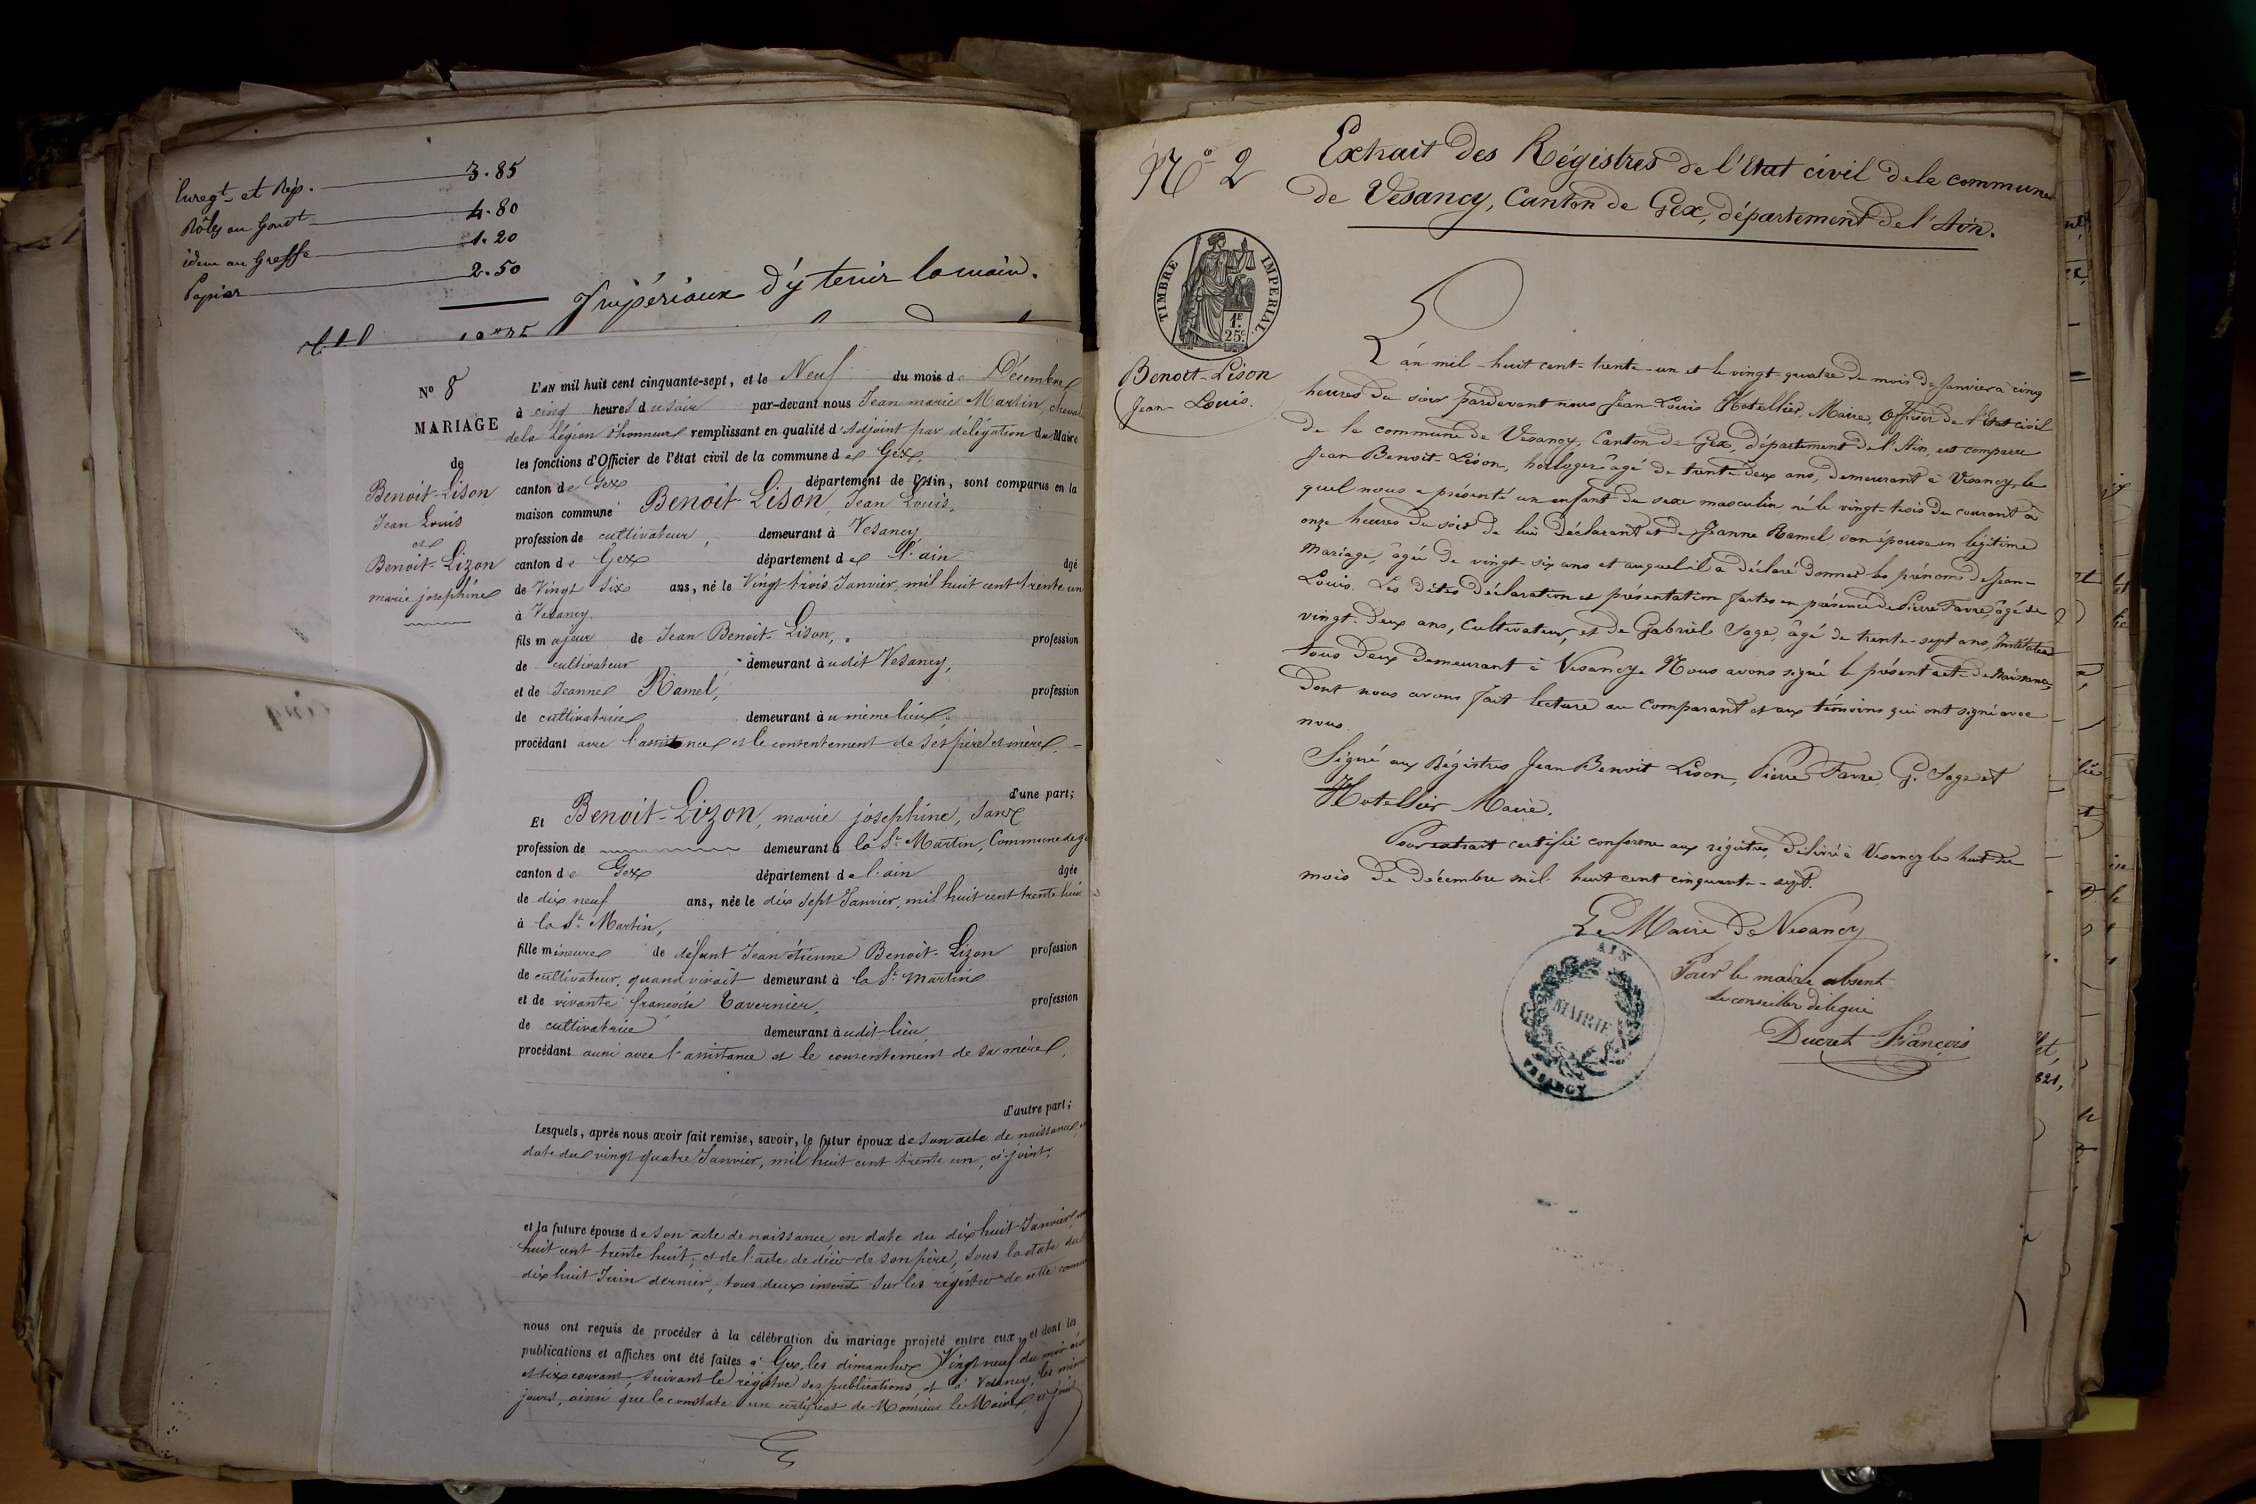 Enregt. et Rép. 3.85
Rôles au Gouvt 4.80
idem au Greffe 1.20
Papier 2.50
Impériaux d'y tenir la main.
N° 8
MARIAGE
de
Benoit-Lison
Jean Louis
et
Benoit-Lizon
marie josephine
L'AN mil huit cent cinquante-sept, et le Neuf du mois de Décembre
à cinq heures du soir par-devant nous Jean marie Martin, cheval
de la Légion d'honneur remplissant en qualité d'Adjoint par délégation du Maire
les fonctions d'Officier de l'état civil de la commune de Gex,
canton de Gex département de l'Ain, sont comparus en la
maison commune Benoit-Lison, Jean Louis,
profession de cultivateur, demeurant à Vesancy
canton de Gex département de l'ain âgé
de Vingt six ans, né le Vingt trois Janvier, mil huit cent trente un
à Vesancy.
fils majeur de Jean Benoit-Lison, profession
de cultivateur demeurant audit Vesancy,
et de Jeanne Ramel, profession
de cultivatrice demeurant au même lieu,
procédant avec l'assistance et le consentement de ses père et mère.
d'une part;
Et Benoit-Lizon, marie josephine, sans
profession de demeurant à la St. Martin, Commune de g
canton de Gex département de l'ain âgée
de dix neuf ans, née le dix sept Janvier, mil huit cent trente huit
à la St. Martin,
fille mineure de défunt Jean étienne Benoit-Lizon profession
de cultivateur, quand vivait demeurant à la St. Martin
et de vivante françoise Tavernier, profession
de cultivatrice demeurant audit lieu,
procédant aussi avec l'assistance et le consentement de sa mère,
d'autre part;
Lesquels, après nous avoir fait remise, savoir, le futur époux de son acte de naissance
date du vingt quatre Janvier, mil huit cent trente un, ci-joint,
et la future épouse de son acte de naissance, en date du dix huit Janvier
huit cent trente huit; et de l'acte de décès de son père, sous la date du
dix huit Juin dernier, tous deux inscrits sur les régistres de cette comm
nous ont requis de procéder à la célébration du mariage projeté entre eux, et dont les
publications et affiches ont été faites à Gex, les dimanches Vingt neuf du mois
et six courant, suivant le régistre des publications, et à Vesancy, les mêmes
jours, ainsi que le constate un certificat de Monsieur le Maire, ci-joint
N° 2
Extrait des Régistres de l'Etat civil de le commune
de Vesancy, Canton de Gex, département de l'Ain.
TIMBRE IMPERIAL
1F.
25c.
Benoit-Lison
Jean-Louis.
L'an mil-huit cent-trente-un et le vingt-quatre du mois de Janvier à cinq
heures du soir pardevant nous Jean-Louis Hotellier, Maire, Officier de l'Etat civil
de le commune de Vesancy, Canton de Gex, département de l'Ain, est comparu
Jean-Benoit-Lison, horloger âgé de trente deux ans, demeurant à Vesancy, le
quel nous a présenté un enfant du sexe masculin né le vingt-trois du courant à
onze heures du soir de lui déclarant et de Jeanne Ramel son épouse en légitime
Mariage, âgée de vingt-six ans et auquel il a déclaré donner les prénoms de Jean-
Louis. Les dites déclaration et présentation faites en présence de Pierre Favre, âgé de
vingt-deux ans, Cultivateur, et de Gabriel Sage, âgé de trente-sept ans, Instituteur
tous deux demeurant à Vesancy. Nous avons signé le présent acte de Naissance,
dont nous avons fait lecture au Comparant et aux témoins qui ont signé avec
nous.
Signé aux Régistres Jean Benoit Lison, Pierre Favre, G. Sage et
Hotellier Maire.
Pour extrait certifié conforme aux régistres, délivré à Vesancy le huit du
mois de décembre mil huit cent cinquante-sept.
Le Maire de Vesancy
Pour le maire absent
Le conseiller délégué
Ducret François
AIN
MAIRIE
VESANCY
821,